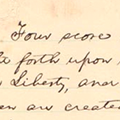 Four score
forth upon
Liberty, and
en are create